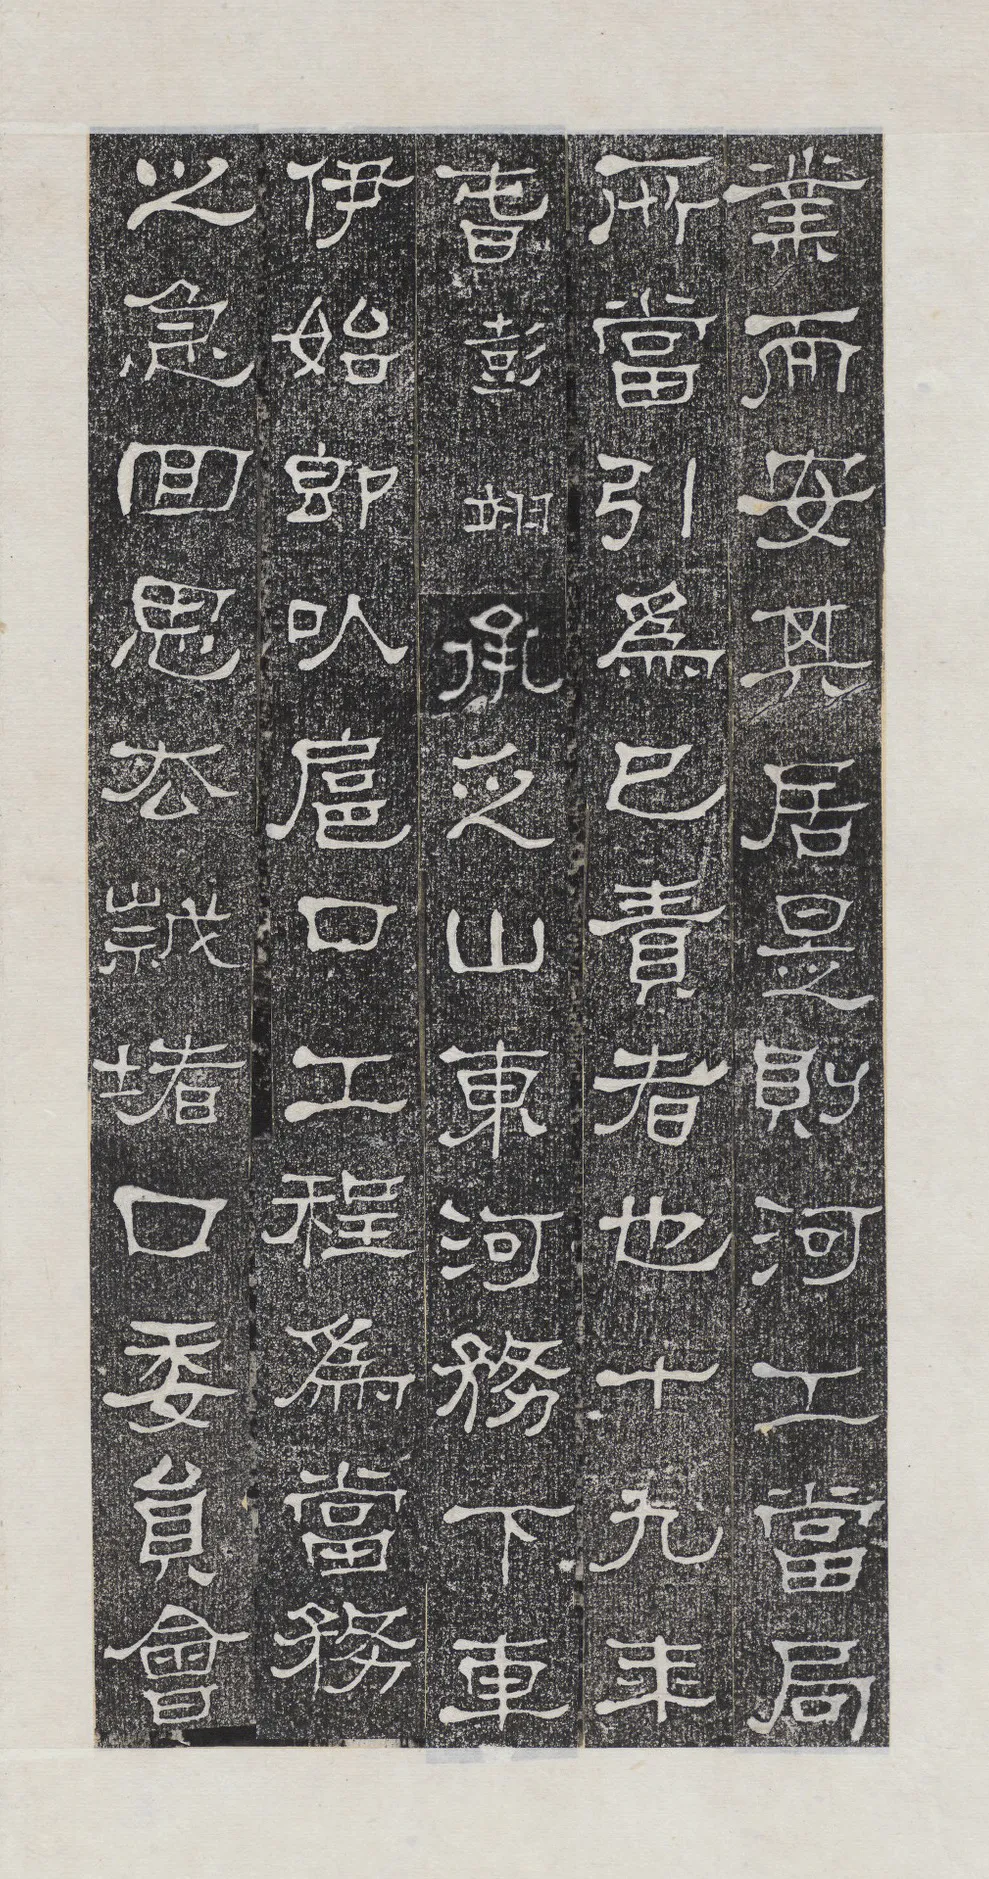 業而安其居是則河工當局
所當引爲己責者也十九年
旾彭翊承乏山東河務下車
伊始即以扈口工程爲當務
之急回思去歲堵口委員會